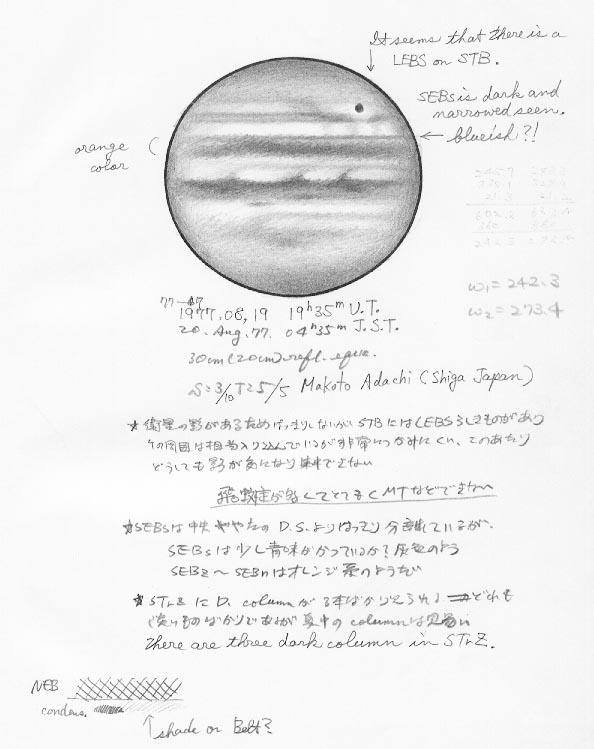 It seems that there is a
LEBS on STB.
SEBs is dark and
narrowed seen.
← blueish?!
orange (
color
ω1 = 242.3
ω2 = 273.4
1977.08,19 19h35m U.T.
20. Aug. 77. 04h35m J.S.T.
30cm (20cm) refl. equa.
S=3/10 T=5/5 Makoto Adachi (Shiga Japan)
★ 衛星の影があるためはっきりしないがSTBにはLEBSらしきものがあり
その周囲は相当入り込んでいるが非常につかみにくい、このあたり
どうしても影が気になり集中できない
が多くてとてもCMTなどできない
★SEBsは中央 の D.S.よりはっきり分離しているが、
SEBsは少し青味がかっているか?灰色のよう
SEBz〜SEBnはオレンジ系のようだ
★ STrZ に D. column が3本ばかり見られる どれも
淡いものばかりであるが真中の column は
There are three dark column in STrZ.
NEB
condens.
↑shade or Belt?